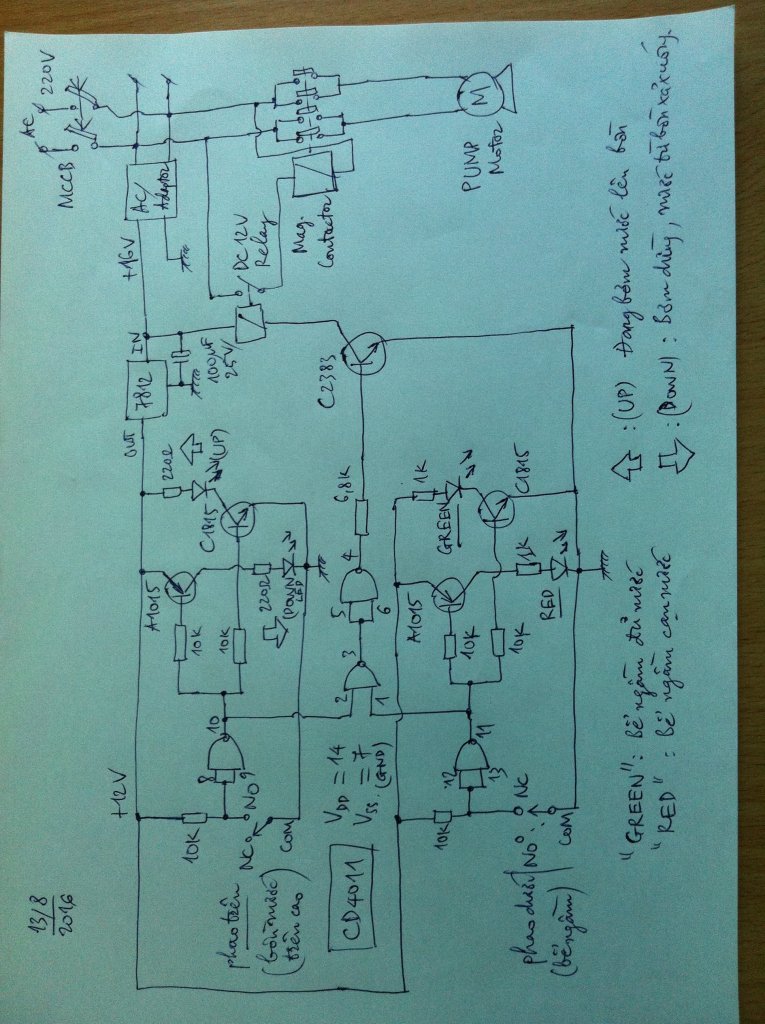 13/8
2016
+12V
OUT
7812
IN
+16V
AC/
Adaptor
MCCB
AC 220V
100µF
25V
DC 12V
Relay
Mag.
Contactor
PUMP
Motor
M
220Ω
(UP)
A1015
C1815
10K
10K
220Ω
(DOWN
LED
10K
8
9
10
NO
NC
COM
phao trên
(bồn nước
trên cao)
2
1
3
5
6
4
6,8K
C2383
VDD = 14
VSS = 7
(GND)
CD4011
1K
GREEN
C1815
A1015
10K
10K
1K
RED
10K
12
13
11
NC
NO
COM
phao dưới
(bể ngầm)
"GREEN": Bể ngầm đủ nước
"RED" : Bể ngầm cạn nước
: (UP) Đang bơm nước lên bồn
: (DOWN) : Bơm dừng, nước từ bồn xả xuống.